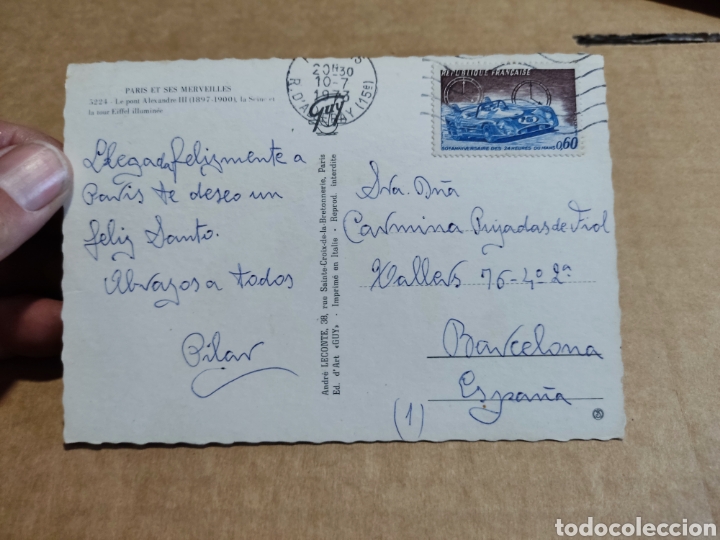 PARIS ET SES MERVEILLES
5224 - Le pont Alexandre III (1897-1900), la Seine et
la tour Eiffel illuminée
Llegada felizmente a
París te deseo un
feliz Santo.
Abrazos a todos
Pilar
André LECONTE, 38, rue Sainte-Croix-de-la-Bretonnerie, Paris
Ed. d'Art «GUY» - Imprimé en Italie - Reprod. interdite
Guy
20H30
10-7
1973
(15e)
REPUBLIQUE FRANÇAISE
50e ANNIVERSAIRE DES 24 HEURES DU MANS
0,60
Sra. Dña
Carmina Pujadas de Fiol
76-4º 2ª
Barcelona
España
(1)
todocoleccion